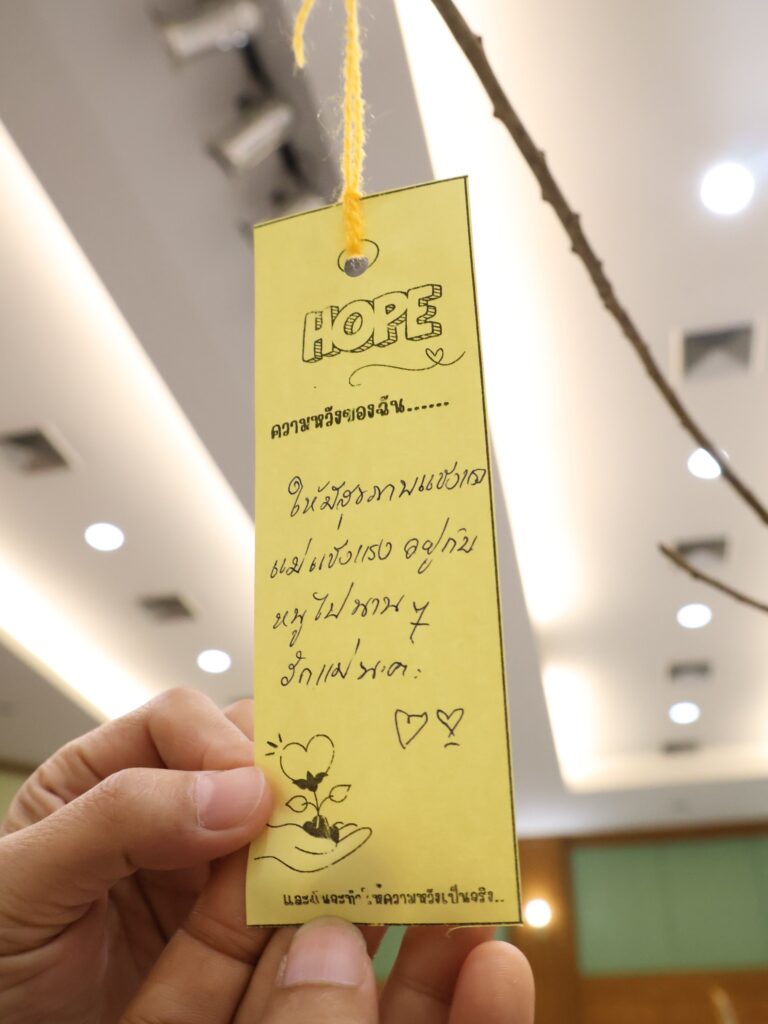 HOPE
ความหวังของฉัน......
ให้มีสุขภาพแข็งแรง
แม่แข็งแรง อยู่กับ
หนูไปนาน ๆ
รักแม่นะคะ
และฉันจะทำให้ความหวังเป็นจริง..